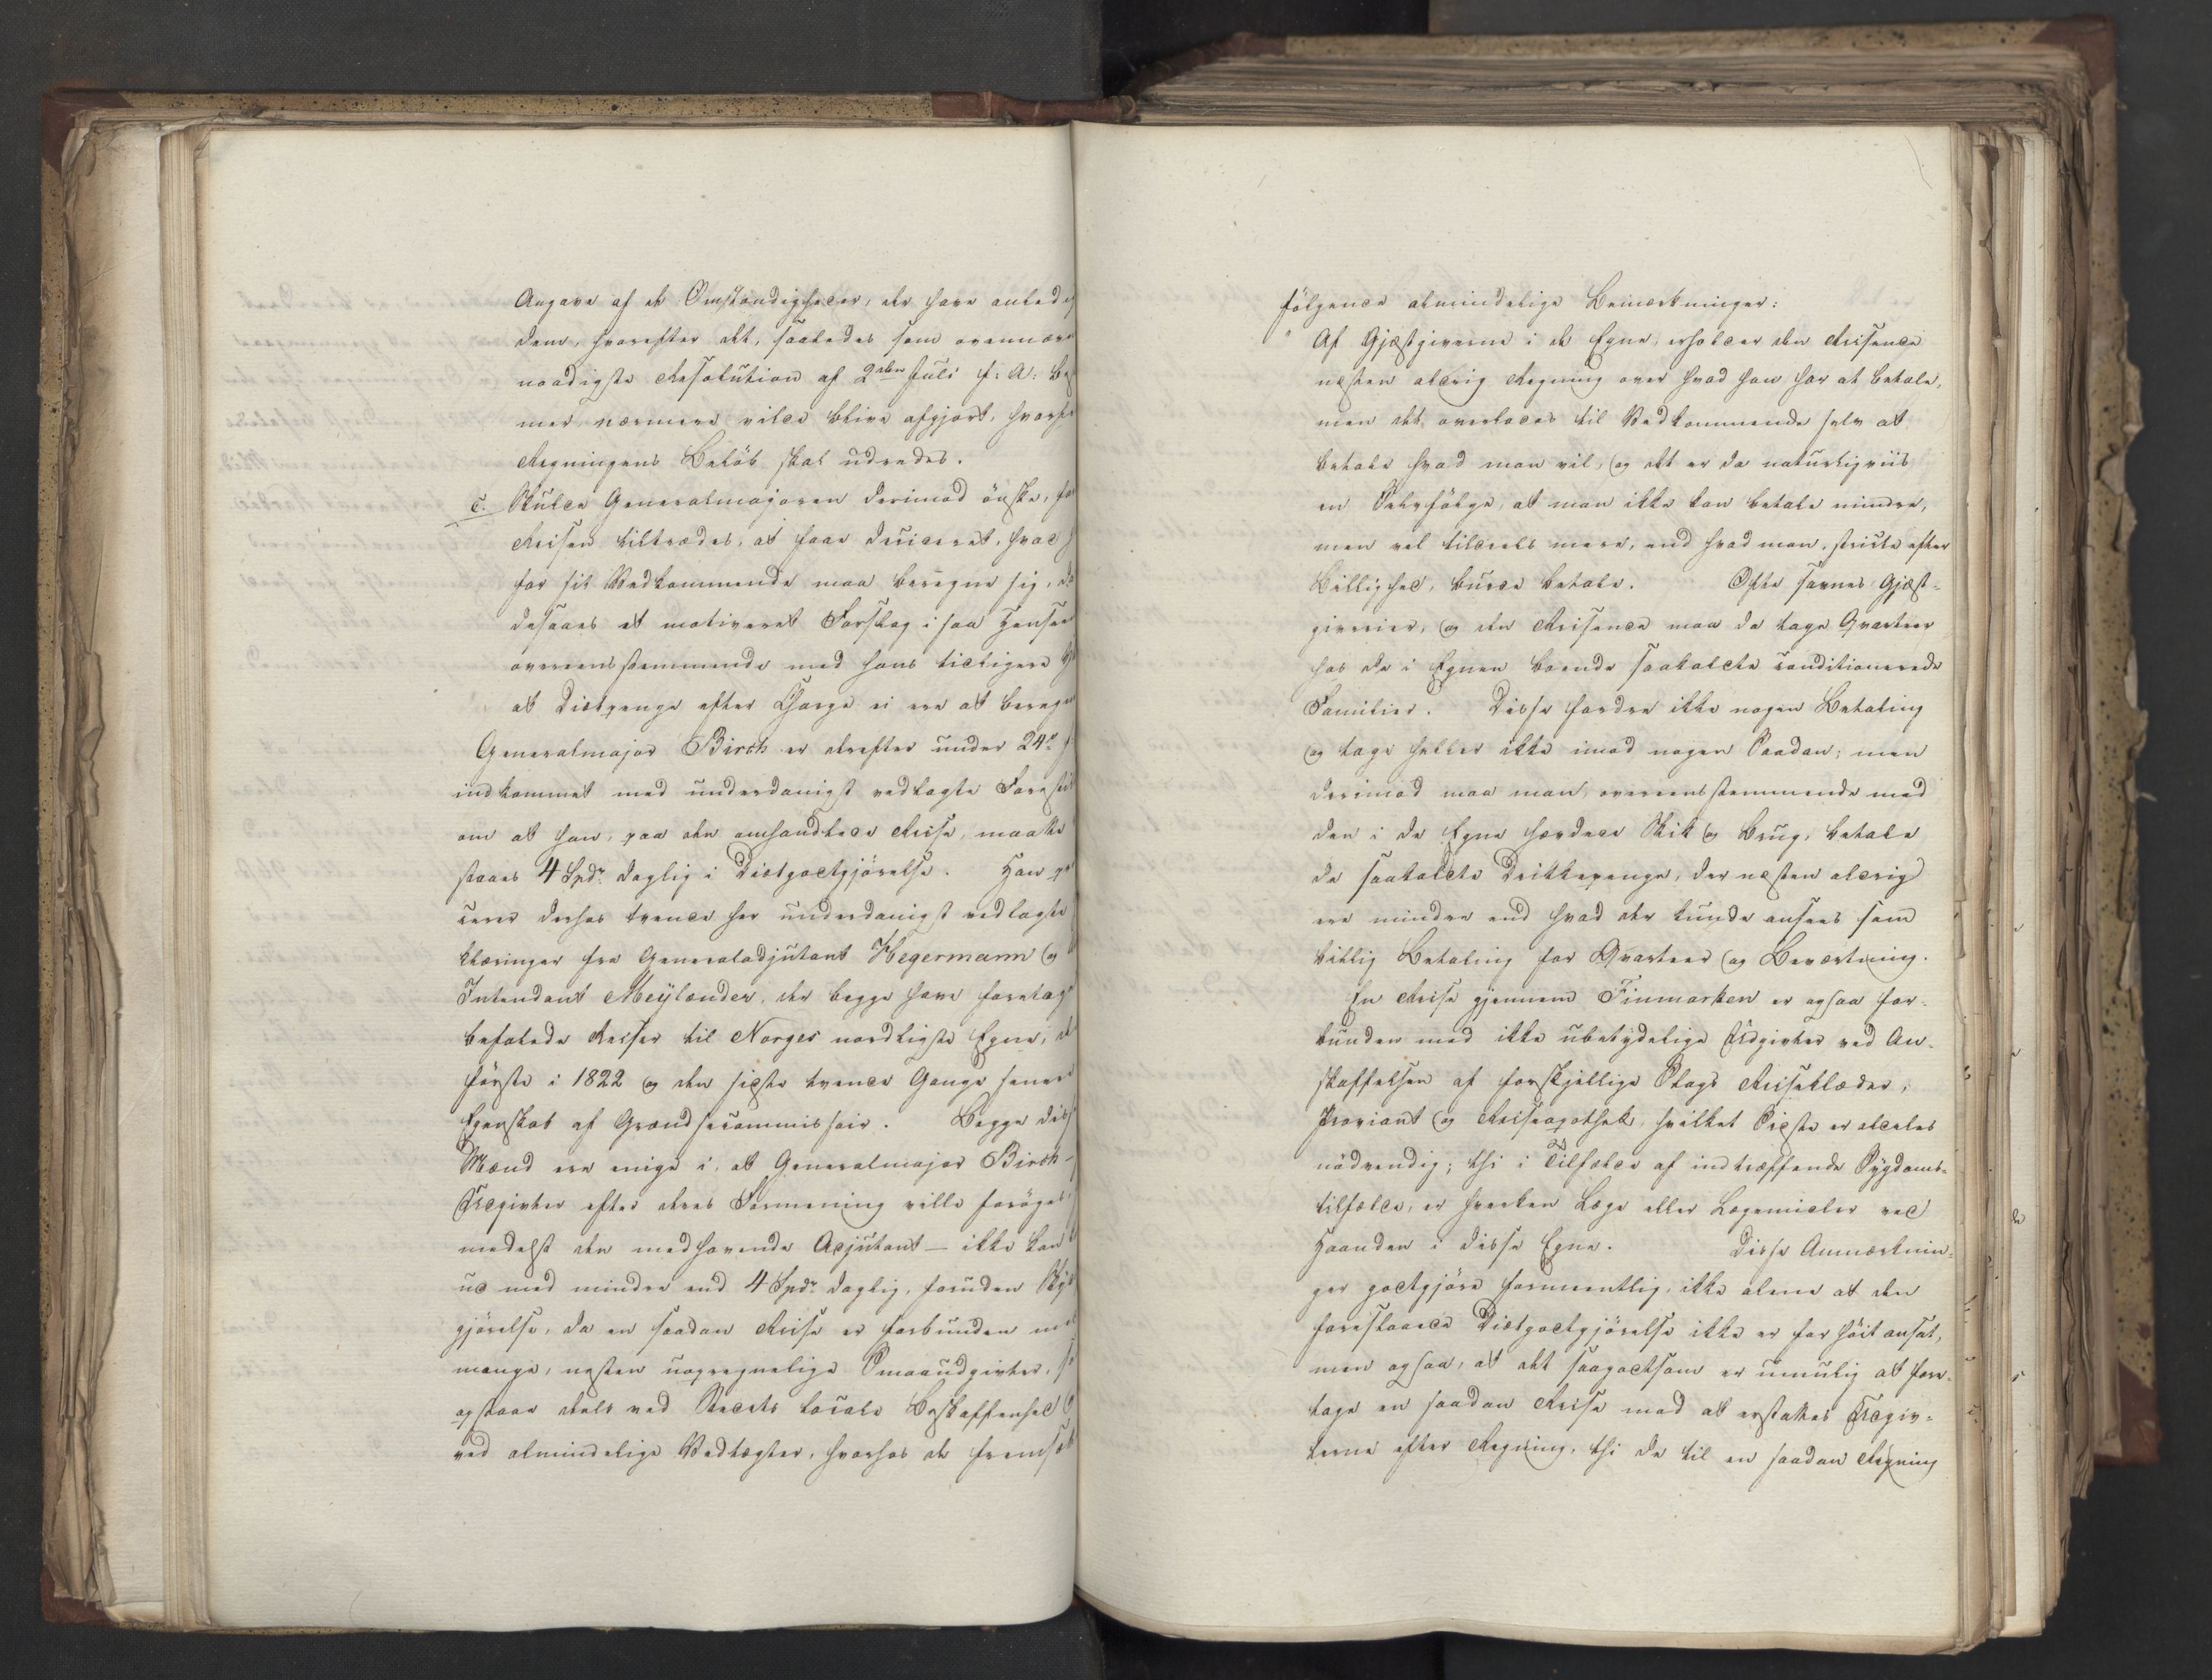 Angave af de Omstændigheder, der have anled
dem, hvorefter det, saaledes som ovennævn
naadigste Resolution af 2den Juli f: A: be
mer, nærmere vilde blive afgjort, hvorfra
Regningens Beløb skal udredes.
c. Skulde Generalmajoren derimod ønske, før
Reisen tiltrædes, at faae decideret, hvad h
for sit Vedkommende maa beregne sig, da
desaars et motiveret Forslag i saa Hensee
overeensstemmende med hans tidligere
at Diætpenge efter Charge ei ere at bereg
Generalmajor Birch er derefter under 24de
indkommet med underdanigst vedlagte Forestil
om at han, paa den omhandlede Reise, maatte
staaes 4 Spdr. daglig i Diætgodtgjørelse. Han
cerer derhos tvende her underdanigst vedlagte
klæringer fra Generaladjutant Hegermann og
Intendant Meylænder, der begge have foretag
befalede Reiser til Norges nordligste Egne, de
første i 1822 og den sidste tvende Gange senere
Egenskab af Grændsecommissair. Begge diss
Mænd ere enige i, at Generalmajor Birch
Udgivter efter deres Formening ville forøges
medelst den medhavende Adjutant — ikke kan
ud med mindre end 4 Spdr. daglig, foruden Sky
gjørelse, da en saadan Reise er forbunden med
mange, næsten uopregnelige Smaaudgivter, s
opstaae deels ved Stedets locale Beskaffenhed
ved almindelige Vedtægter, hvorhos de fremsæt
følgende almindelige Bemærkninger:
" Af Gjæstgiverne i de Egne, erholder den Reisende
næsten aldrig Regning over hvad han har at betale,
men det overlades til Vedkommende selv at
betale hvad man vil, og det er da naturligviis
en Selvfølge, at man ikke kan betale mindre,
men vel tildeels mere, end hvad man, stricte efter
Billighed, burde betale. Ofte savnes Gjæst-
giverier, og den Reisende maa da tage Qvarteer
hos de i Egnen boende saakaldte conditionerede
Familier. Disse fordre ikke nogen Betaling
og tage heller ikke imod nogen Saadan; men
derimod maa man, overeensstemmende med
den i de Egne hævdede Skik og Brug, betale
de saakaldte Drikkepenge, der næsten aldrig
ere mindre end hvad der kunde ansees som
billig Betaling for Qvarteer og Beværtning.
En Reise gjennem Finmarken er ogsaa for-
bunden med ikke ubetydelige Udgivter ved An-
skaffelsen af forskjellige Slags Reiseklæder,
Proviant og Reiseapothek, hvilket Sidste er aldeles
nødvendig; thi i Tilfælde af indtræffende Sygdoms-
tilfælde, er hverken Læge eller Lægemidler ved
Haanden i disse Egne. Disse Anmærknin-
ger godtgjøre formeentlig, ikke alene at den
foreslaaede Diætgodtgjørelse ikke er for høit ansat,
men ogsaa, at det saagodtsom er umulig at fore-
tage en saadan Reise med at erstattes Udgiv-
terne efter Regning, thi da til en saadan Regning